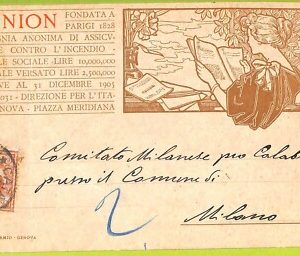 NION FONDATA A
PARIGI 1828
NIA ANONIMA DI ASSICV
E CONTRO L'INCENDIO
LE SOCIALE - LIRE 10,000,000
ALE VERSATO LIRE 2,500,000
VE AL 31 DICEMBRE 1905
,031 - DIREZIONE PER L'ITA
NOVA - PIAZZA MERIDIANA
Comitato Milanese pro Calab
presso il Comune di
Milano
2
RMIO - GENOVA